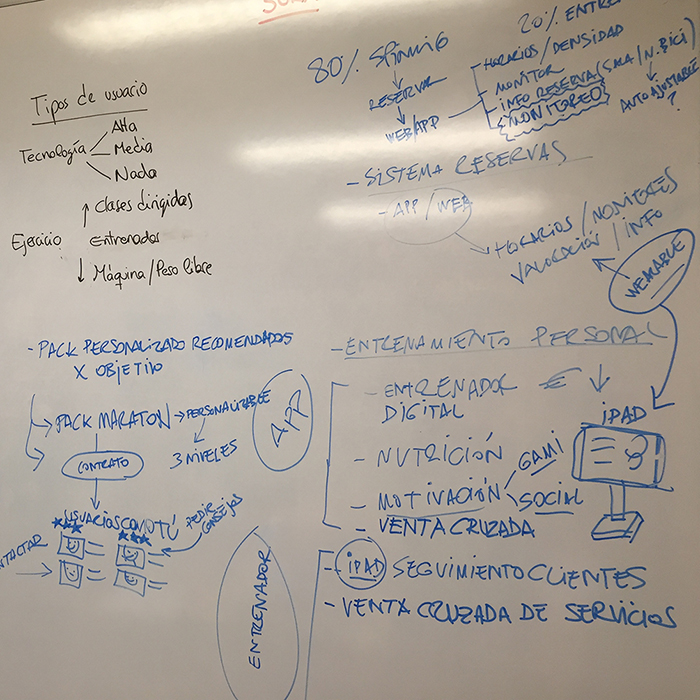 Tipos de usuario
Tecnología
Alta
Media
Nada
Ejercicio
Clases dirigidas
Entrenador
Máquina/Peso libre
80% SPINNING
RESERVAR
WEB/APP
20% ENTRE
HORARIOS/DENSIDAD
MONITOR
INFO RESERVA (SALA/N.BICI)
MONITOREO
AUTOAJUSTABLE
?
- SISTEMA RESERVAS
- APP/WEB
HORARIOS/NOMBRES
VALORACIÓN/INFO
WEARABLE
- PACK PERSONALIZADO RECOMENDADOS
X OBJETIVO
PACK MARATON
PERSONALIZABLE
3 NIVELES
CONTRATO
APP
USUARIOS COMO TÚ
PEDIR
CONSEJOS
NTACTAR
- ENTRENAMIENTO PERSONAL
- ENTRENADOR
DIGITAL
€
- NUTRICIÓN
- MOTIVACIÓN
GAMI
SOCIAL
- VENTA CRUZADA
iPAD
ENTRENADOR
- iPAD SEGUIMIENTO CLIENTES
- VENTA CRUZADA DE SERVICIOS